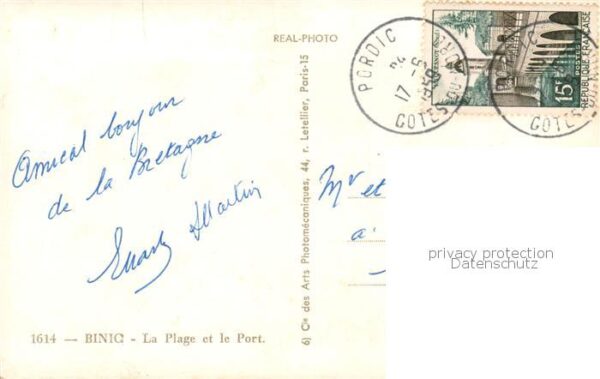 REAL-PHOTO
Amical bonjour
de la Bretagne
Martin
1614 — BINIC - La Plage et le Port.
6) Cie des Arts Photomécaniques, 44, r. Letellier, Paris-15
PORDIC
17
COTES DU NORD
15F
REPUBLIQUE FRANÇAISE
POSTES
Mr et
a
privacy protection
Datenschutz